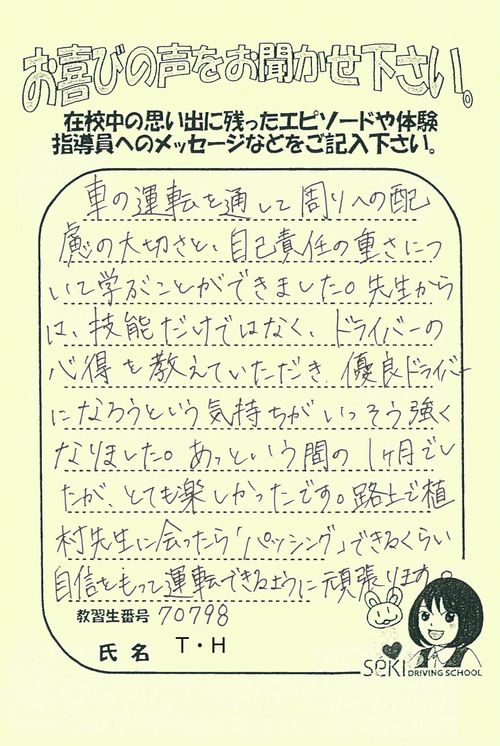 お喜びの声をお聞かせ下さい。
在校中の思い出に残ったエピソードや体験
指導員へのメッセージなどをご記入下さい。
車の運転を通して周りへの配
慮の大切さと、自己責任の重さにつ
いて学ぶことができました。先生から
は、技能だけではなく、ドライバーの
心得を教えていただき、優良ドライバー
になろうという気持ちがいっそう強く
なりました。あっという間の1ヶ月でし
たが、とても楽しかったです。路上で植
村先生に会ったら「パッシング」できるくらい
自信をもって運転できるように頑張ります。
教習生番号 70798
氏名 T・H
SEKI DRIVING SCHOOL